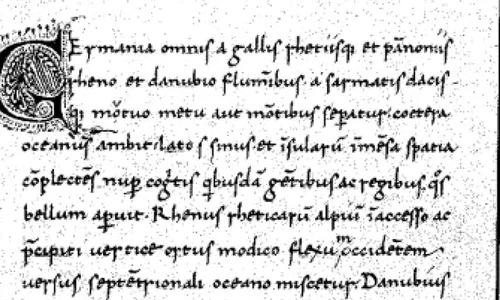 GErmania omnis a gallis rhetiisq; et pãnoniis
rheno et danubio fluminibus a sarmatis dacis-
q; motuo metu aut mõtibus sepatur. coetera
oceanus ambit. lato s sinus. et ĩsularũ ĩmẽsa spatia
cõplectẽs nup cogtis qbusdã gẽtibus ac regibus. qs
bellum apuit. Rhenus rheticarũ alpiũ ĩaccesso ac
pcipiti vertice ortus modico flexu occidẽtem
versus septẽtrionali oceano miscetur. Danubius